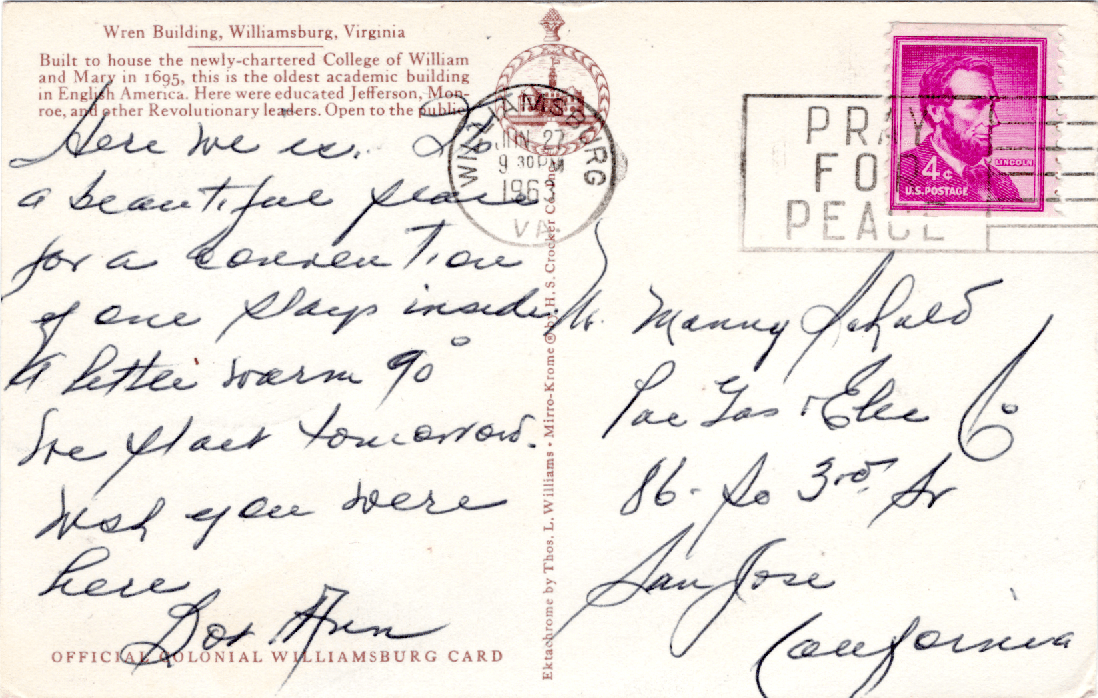 Wren Building, Williamsburg, Virginia
Built to house the newly-chartered College of William
and Mary in 1695, this is the oldest academic building
in English America. Here were educated Jefferson, Mon-
roe, and other Revolutionary leaders. Open to the public
Here we is. Its
a beautiful place
for a convention
if one stays inside
A little warm 90°
We start tomorrow.
Wish you were
here
Dot Ann
OFFICIAL COLONIAL WILLIAMSBURG CARD
Ektachrome by Thos. L. Williams • Mirro-Krome ® by H. S. Crocker Co.
WILLIAMSBURG
JUN 27
9 30 PM
1963
VA.
PRAY
FOR
PEACE
LINCOLN
4¢
U.S. POSTAGE
Manny
Pac Gas & Elec Co
86 - So 3rd St
San Jose
California